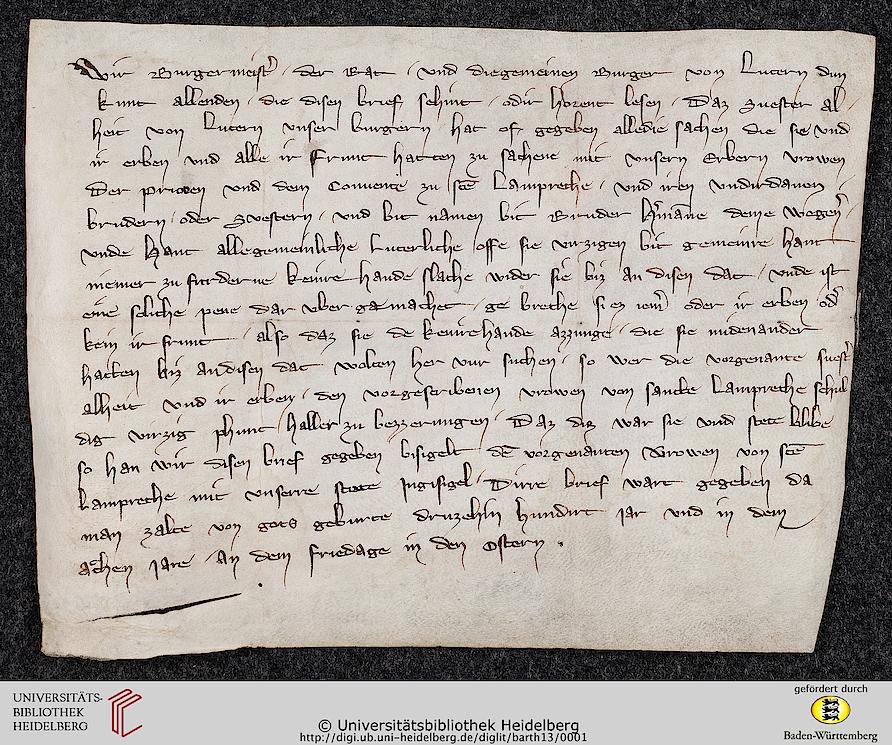 Wir Burgermeist̄ · der Rat · vnd diegemeinen Burger von Lutern dun
kunt allenden · die disen brief sehint · odir horent lesen · Daz Suester al-
heit von Lutern vnser burgern hat of gegeben alledie sachen die sie vnd
ir erben vnd alle ir frunt hatten zu sachene mit vnsern Erbern vrowen
Der priolen vnd dem Conuente zu scē Lampreche · vnd iren vndirdanen
brudern · oder Suestern · vnd bit namen bit Bruder
vnde hant allegemeinliche luterliche offe sie virzigen bit gemeinre hant
niemer zu furderne keinre hande slache wider sie biz an disen dat · vnde ist
eine soliche pene dar vber gamachet · ge breche si ez oder ir erben od̄
kein ir frunt · also daz sie de keinrehande · die sie midenander
hatten biz andisen dat wolten her vur suchen · so wer die vorgenante suest̄
alheit vnd ir erben · den vorgescribenen vrowen von sancte Lampreche schul
dig virzig phunt · haller zu bezzerungen · Daz diz war sie vnd stete blibe
so han wir disen brief gegeben bisigelt dē vorgenanten vrowen von scē
Lampreche mit vnserre stete Ingisigel · Dirre brief wart gegeben da
man zalte von gots geburte druzehin hundirt jar vnd in dem
jare · An dem friedage in den Ostern ·
UNIVERSITÄTS-
BIBLIOTHEK
HEIDELBERG
© Universitätsbibliothek Heidelberg
http://digi.ub.uni-heidelberg.de/diglit/barth13/0001
gefördert durch
Baden-Württemberg